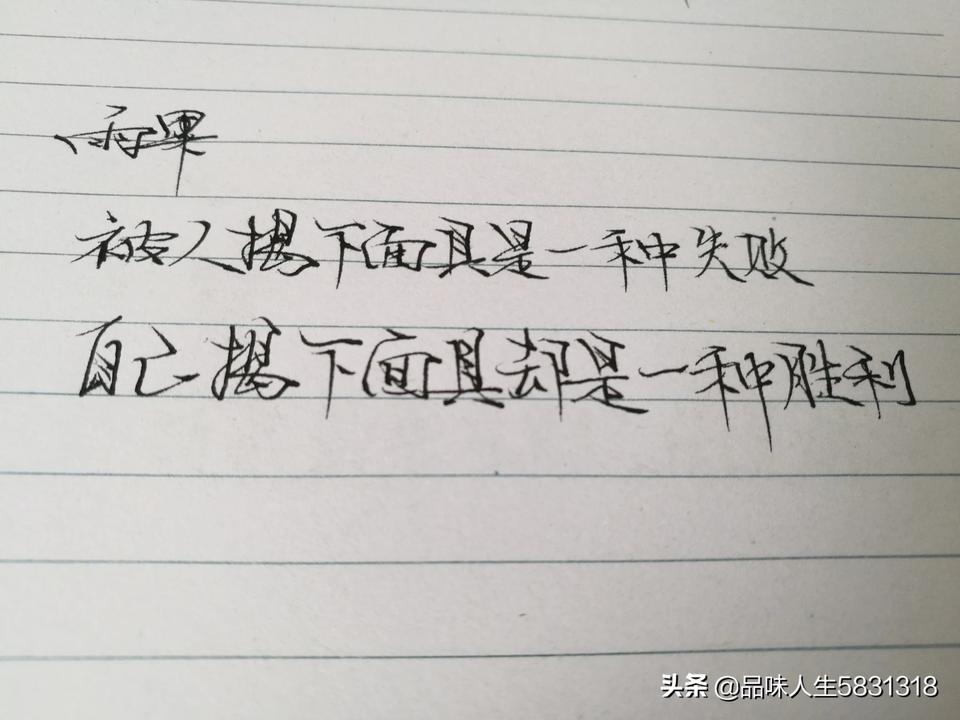 雨果
被人揭下面具是一种失败
自己揭下面具却是一种胜利
头条 @品味人生5831318